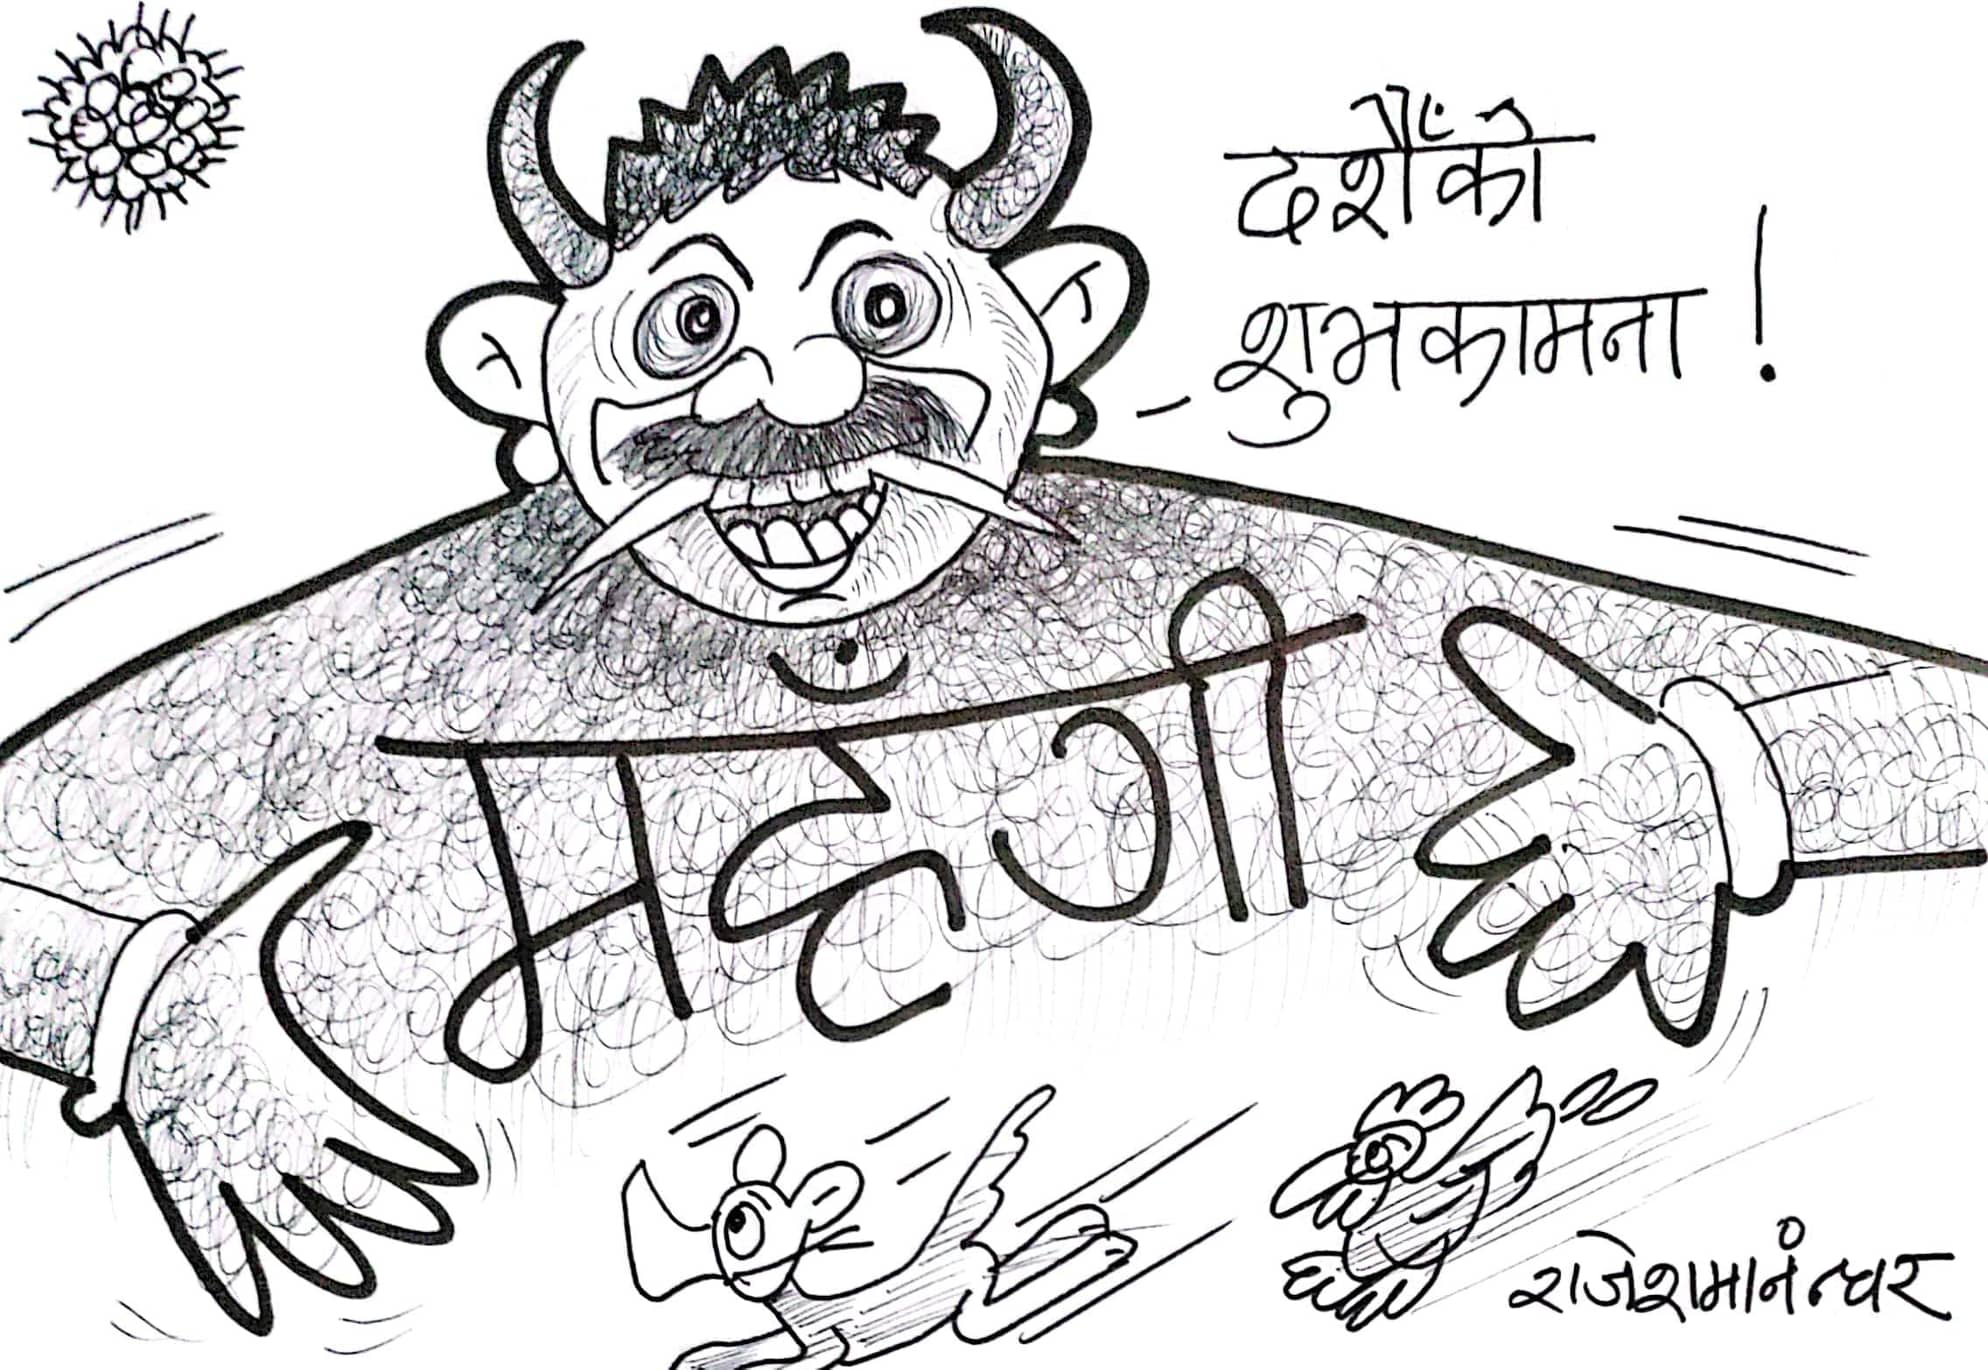 दशैंको
शुभकामना !
महँगी
राजेश मानन्धर